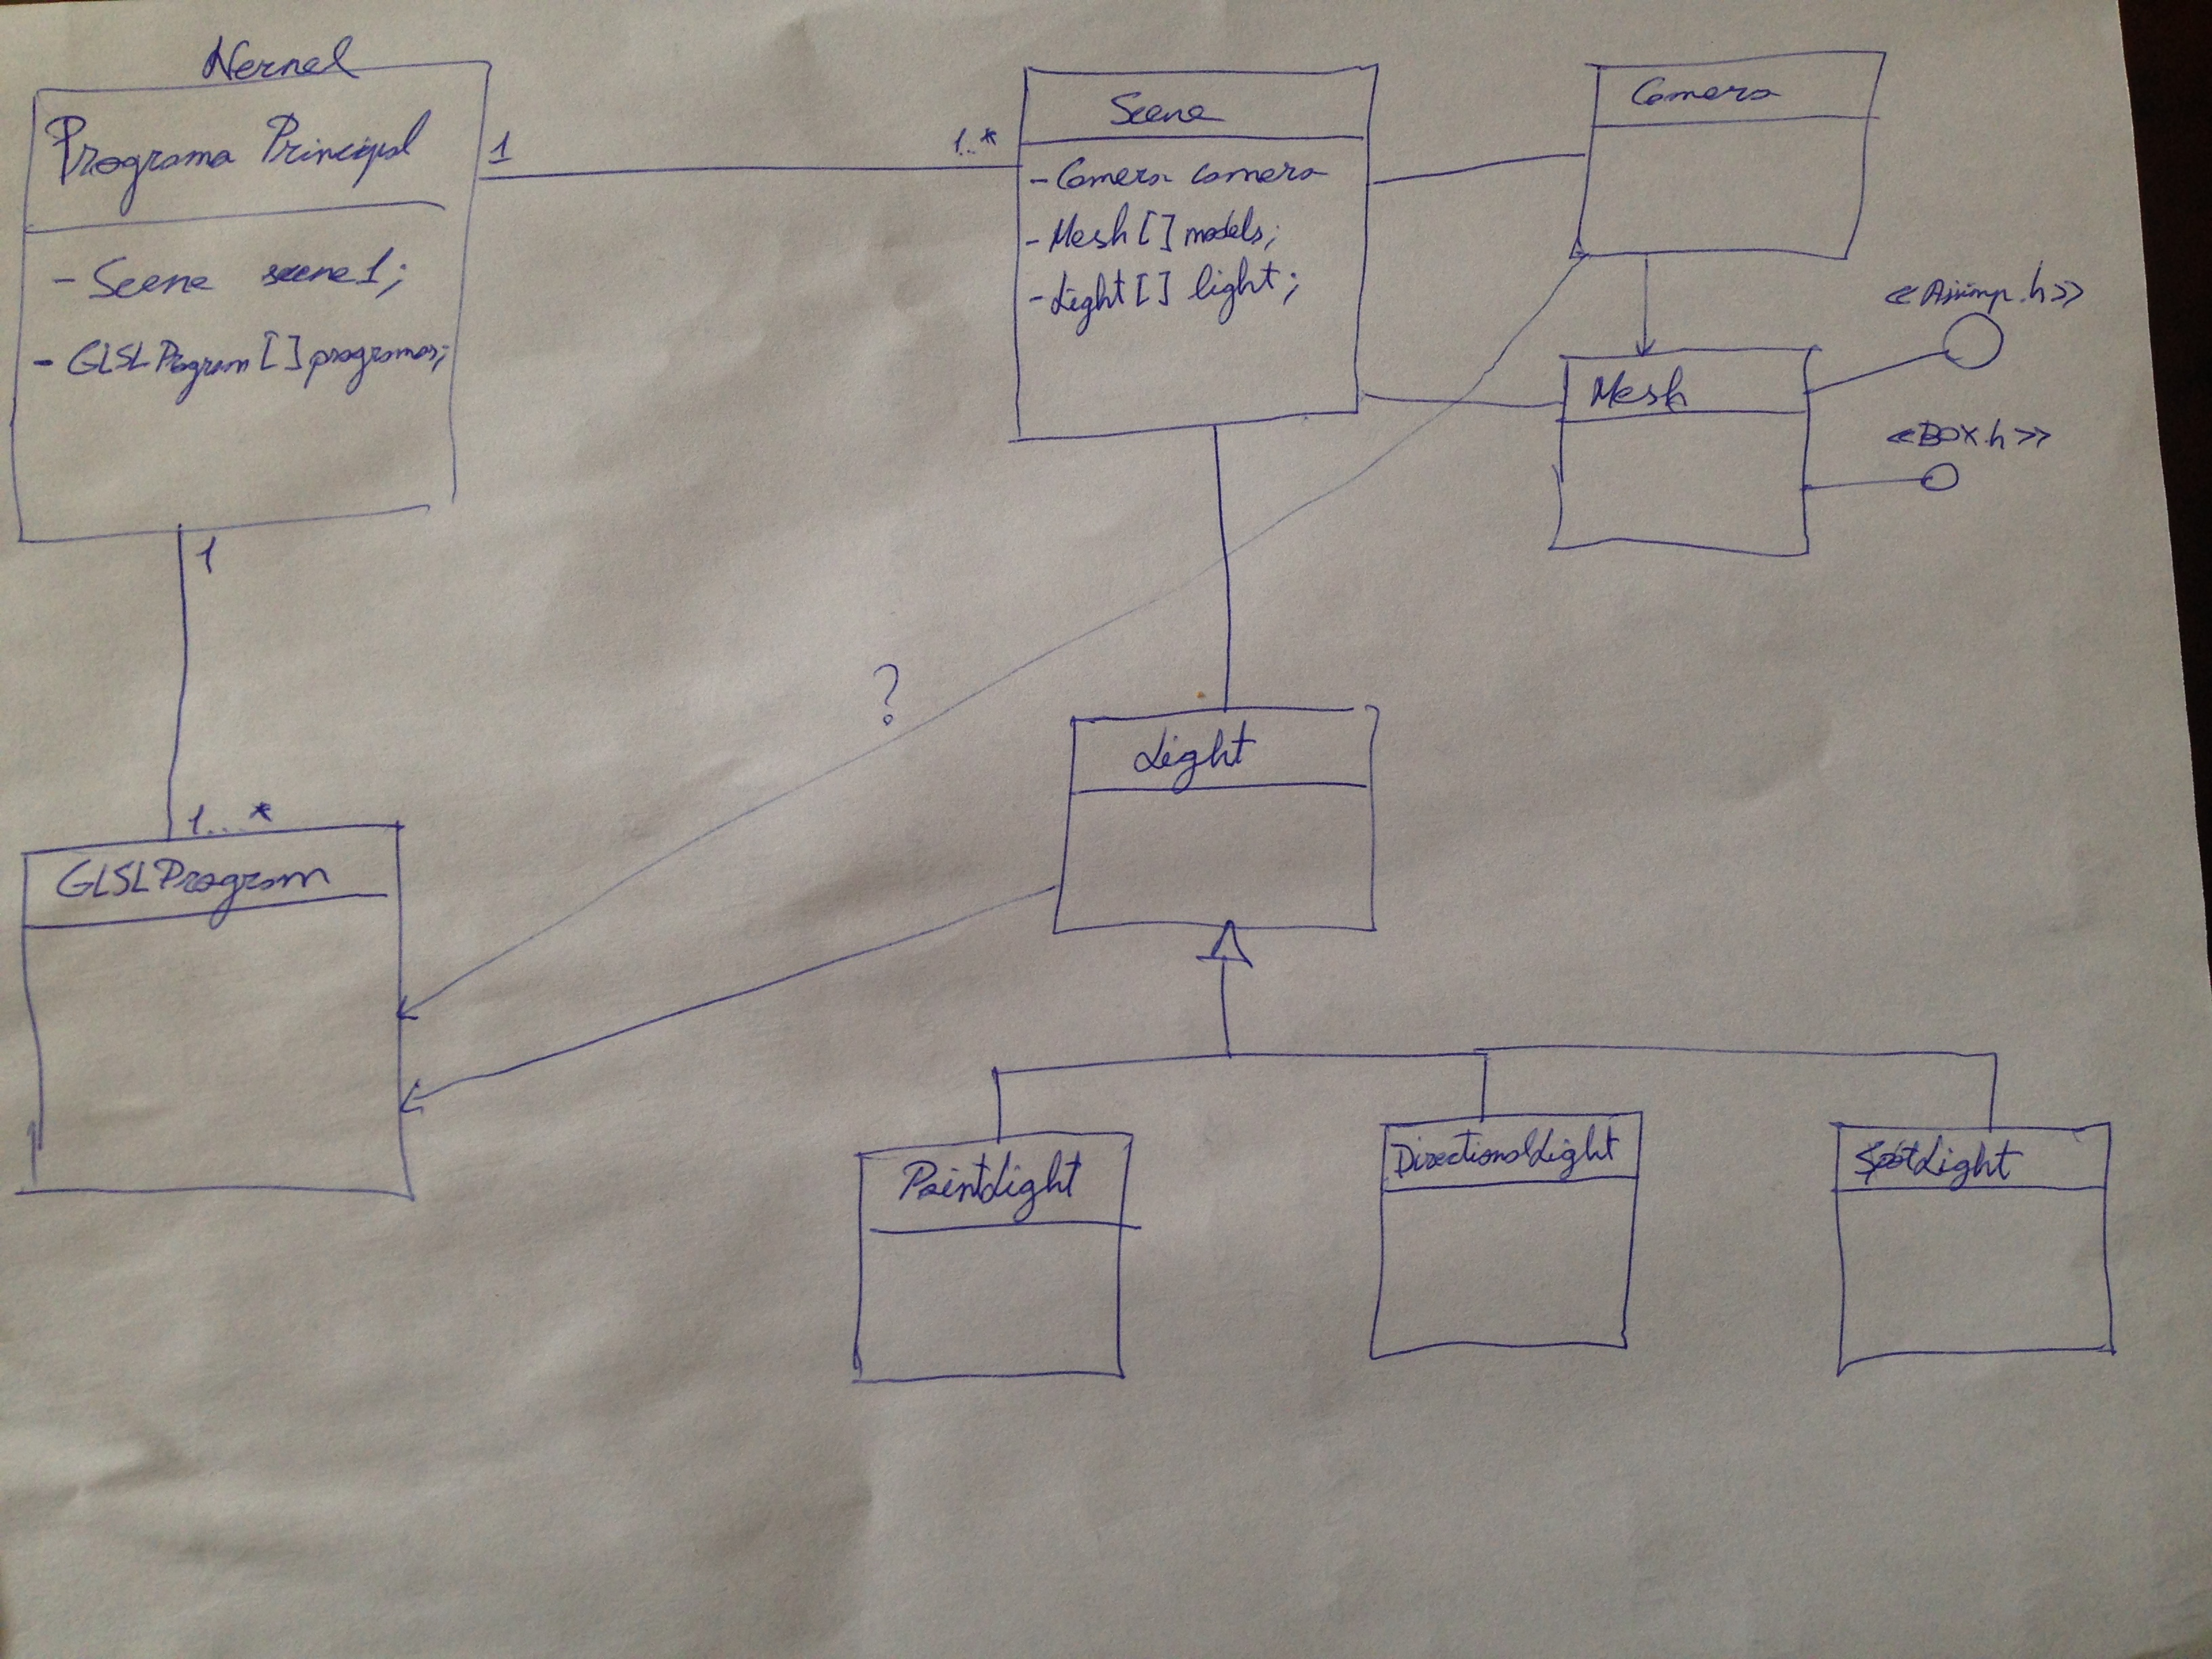 Kernel
Programa Principal
- Scene scene1;
- GLSLProgram [] programas;
1
1..*
Scene
- Camera camera
- Mesh [] models;
- Light [] light;
Camera
<<Assimp.h>>
Mesh
<<BOX.h>>
1
?
Light
1...*
GLSLProgram
PointLight
DirectionalLight
SpotLight